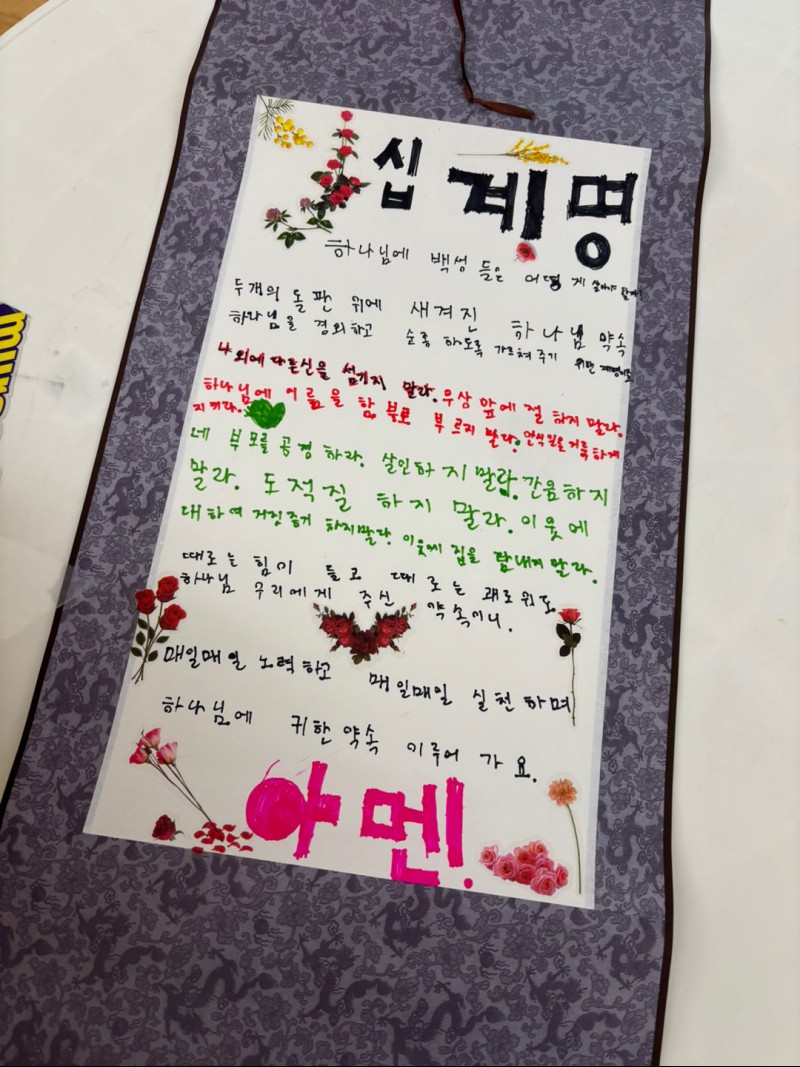 십계명
하나님에 백성들은 어떻게 살아야 할까!
두개의 돌판 위에 새겨진 하나님 약속
하나님을 경외하고 순종 하도록 가르쳐 주기 위한 계명이죠
나 외에 다른신을 섬기지 말라. 우상 앞에 절 하지 말라.
하나님에 이름을 함부로 부르지 말라. 안식일을 거룩하게
지키라.
네 부모를 공경 하라. 살인하지 말라. 간음하지
말라. 도적질 하지 말라. 이웃에
대하여 거짓증거 하지말라. 이웃에 집을 탐내지 말라.
때로는 힘이 들고 때로는 괴로워도
하나님 우리에게 주신 약속이니.
매일매일 노력하고 매일매일 실천하며
하나님에 귀한약속 이루어 가요.
아멘!